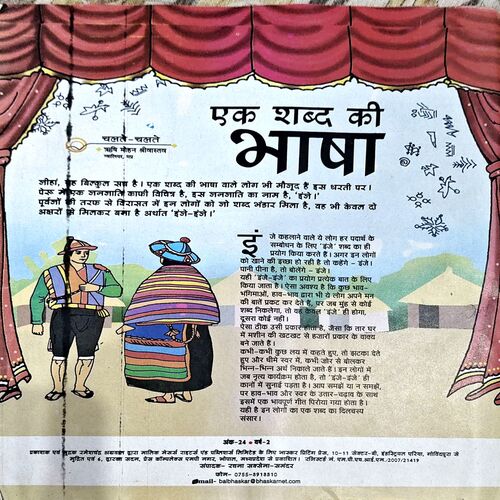 एक शब्द की
भाषा
चलते-चलते
ऋषि मोहन श्रीवास्तव
ग्वालियर, मप्र
जीहां, यह बिल्कुल सच है। एक शब्द की भाषा वाले लोग भी मौजूद हैं इस धरती पर।
पेरू में एक जनजाति काफी विचित्र है, इस जनजाति का नाम है, 'इंजे'।
पूर्वजों की तरफ से विरासत में इन लोगों को जो शब्द भंडार मिला है, वह भी केवल दो
अक्षरों से मिलकर बना है अर्थात 'इंजे-इंजे'।
इंजे कहलाने वाले ये लोग हर पदार्थ के
सम्बोधन के लिए 'इंजे' शब्द का ही
प्रयोग किया करते हैं। अगर इन लोगों
को खाने की इच्छा हो रही है तो कहेंगे - इंजे।
पानी पीना है, तो बोलेंगे - इंजे।
यही 'इंजे-इंजे' का प्रयोग प्रत्येक बात के लिए
किया जाता है। ऐसा अवश्य है कि कुछ भाव-
भंगिमाओं, हाव-भाव द्वारा भी ये लोग अपने मन
की बातें प्रकट कर देते हैं, पर जब मुंह से कोई
शब्द निकलेगा, तो वह केवल 'इंजे' ही होगा,
दूसरा कोई नहीं।
ऐसा ठीक उसी प्रकार होता है, जैसा कि तार घर
में मशीन की खटखट से हजारों प्रकार के वाक्य
बन जाते हैं।
कभी-कभी कुछ लय में कहते हुए, तो झटका देते
हुए और धीमे स्वर में, कभी जोर से बोलकर
भिन्न-भिन्न अर्थ निकाले जाते हैं। इन लोगों में
जब नृत्य कार्यक्रम होता है, तो 'इंजे-इंजे' ही
कानों में सुनाई पड़ता है। आप समझें या न समझें,
पर हाव-भाव और स्वर के उतार-चढ़ाव के साथ
इसमें एक भावपूर्ण गीत पिरोया गया होता है।
यही है इन लोगों का एक शब्द का दिलचस्प
संसार।
अंक-24 • वर्ष-2
प्रकाशक एवं मुद्रक रमेशचंद्र अग्रवाल द्वारा मालिक मेसर्स राइटर्स एंड पब्लिशर्स लिमिटेड के लिए भास्कर प्रिंटिंग प्रेस, 10-11 सेक्टर-बी, इंडस्ट्रियल एरिया, गोविंदपुरा से
मुद्रित एवं 6, द्वारका सदन, प्रेस कॉम्पलेक्स एमपी नगर, भोपाल, मध्यप्रदेश से प्रकाशित। रजिस्टर्ड नं. एम.पी.एच.आई.एम./2007/21419
संपादक- रचना सक्सेना-समंदर
फोन- 0755-3918310
email- balbhaskar@bhaskarnet.com